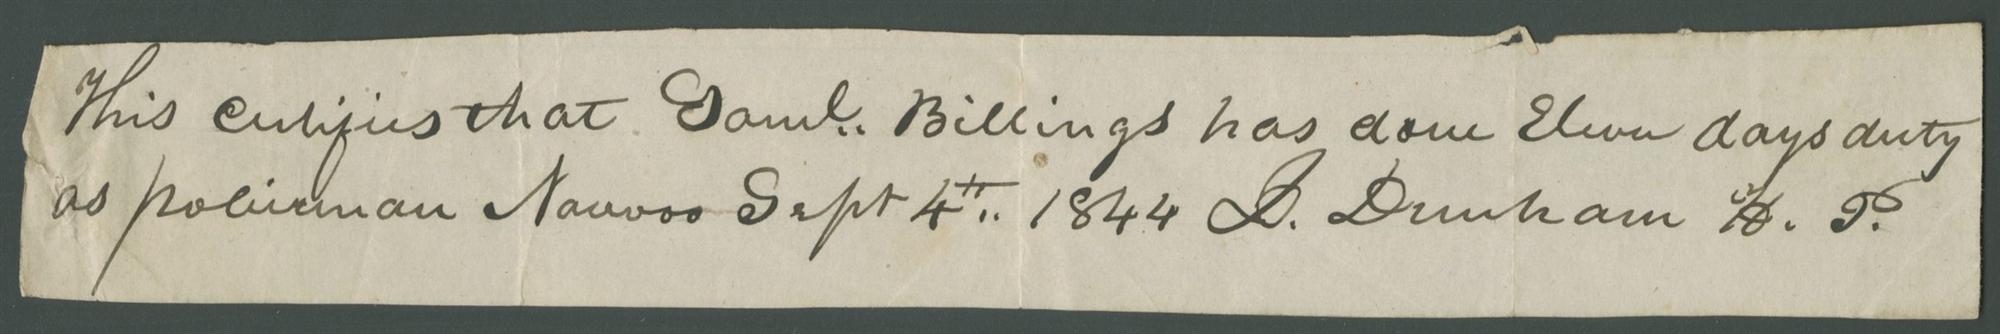 This certifies that Saml. Billings has done Eleven days duty
as policeman Nauvoo Sept 4th. 1844 J. Dunham H. P.